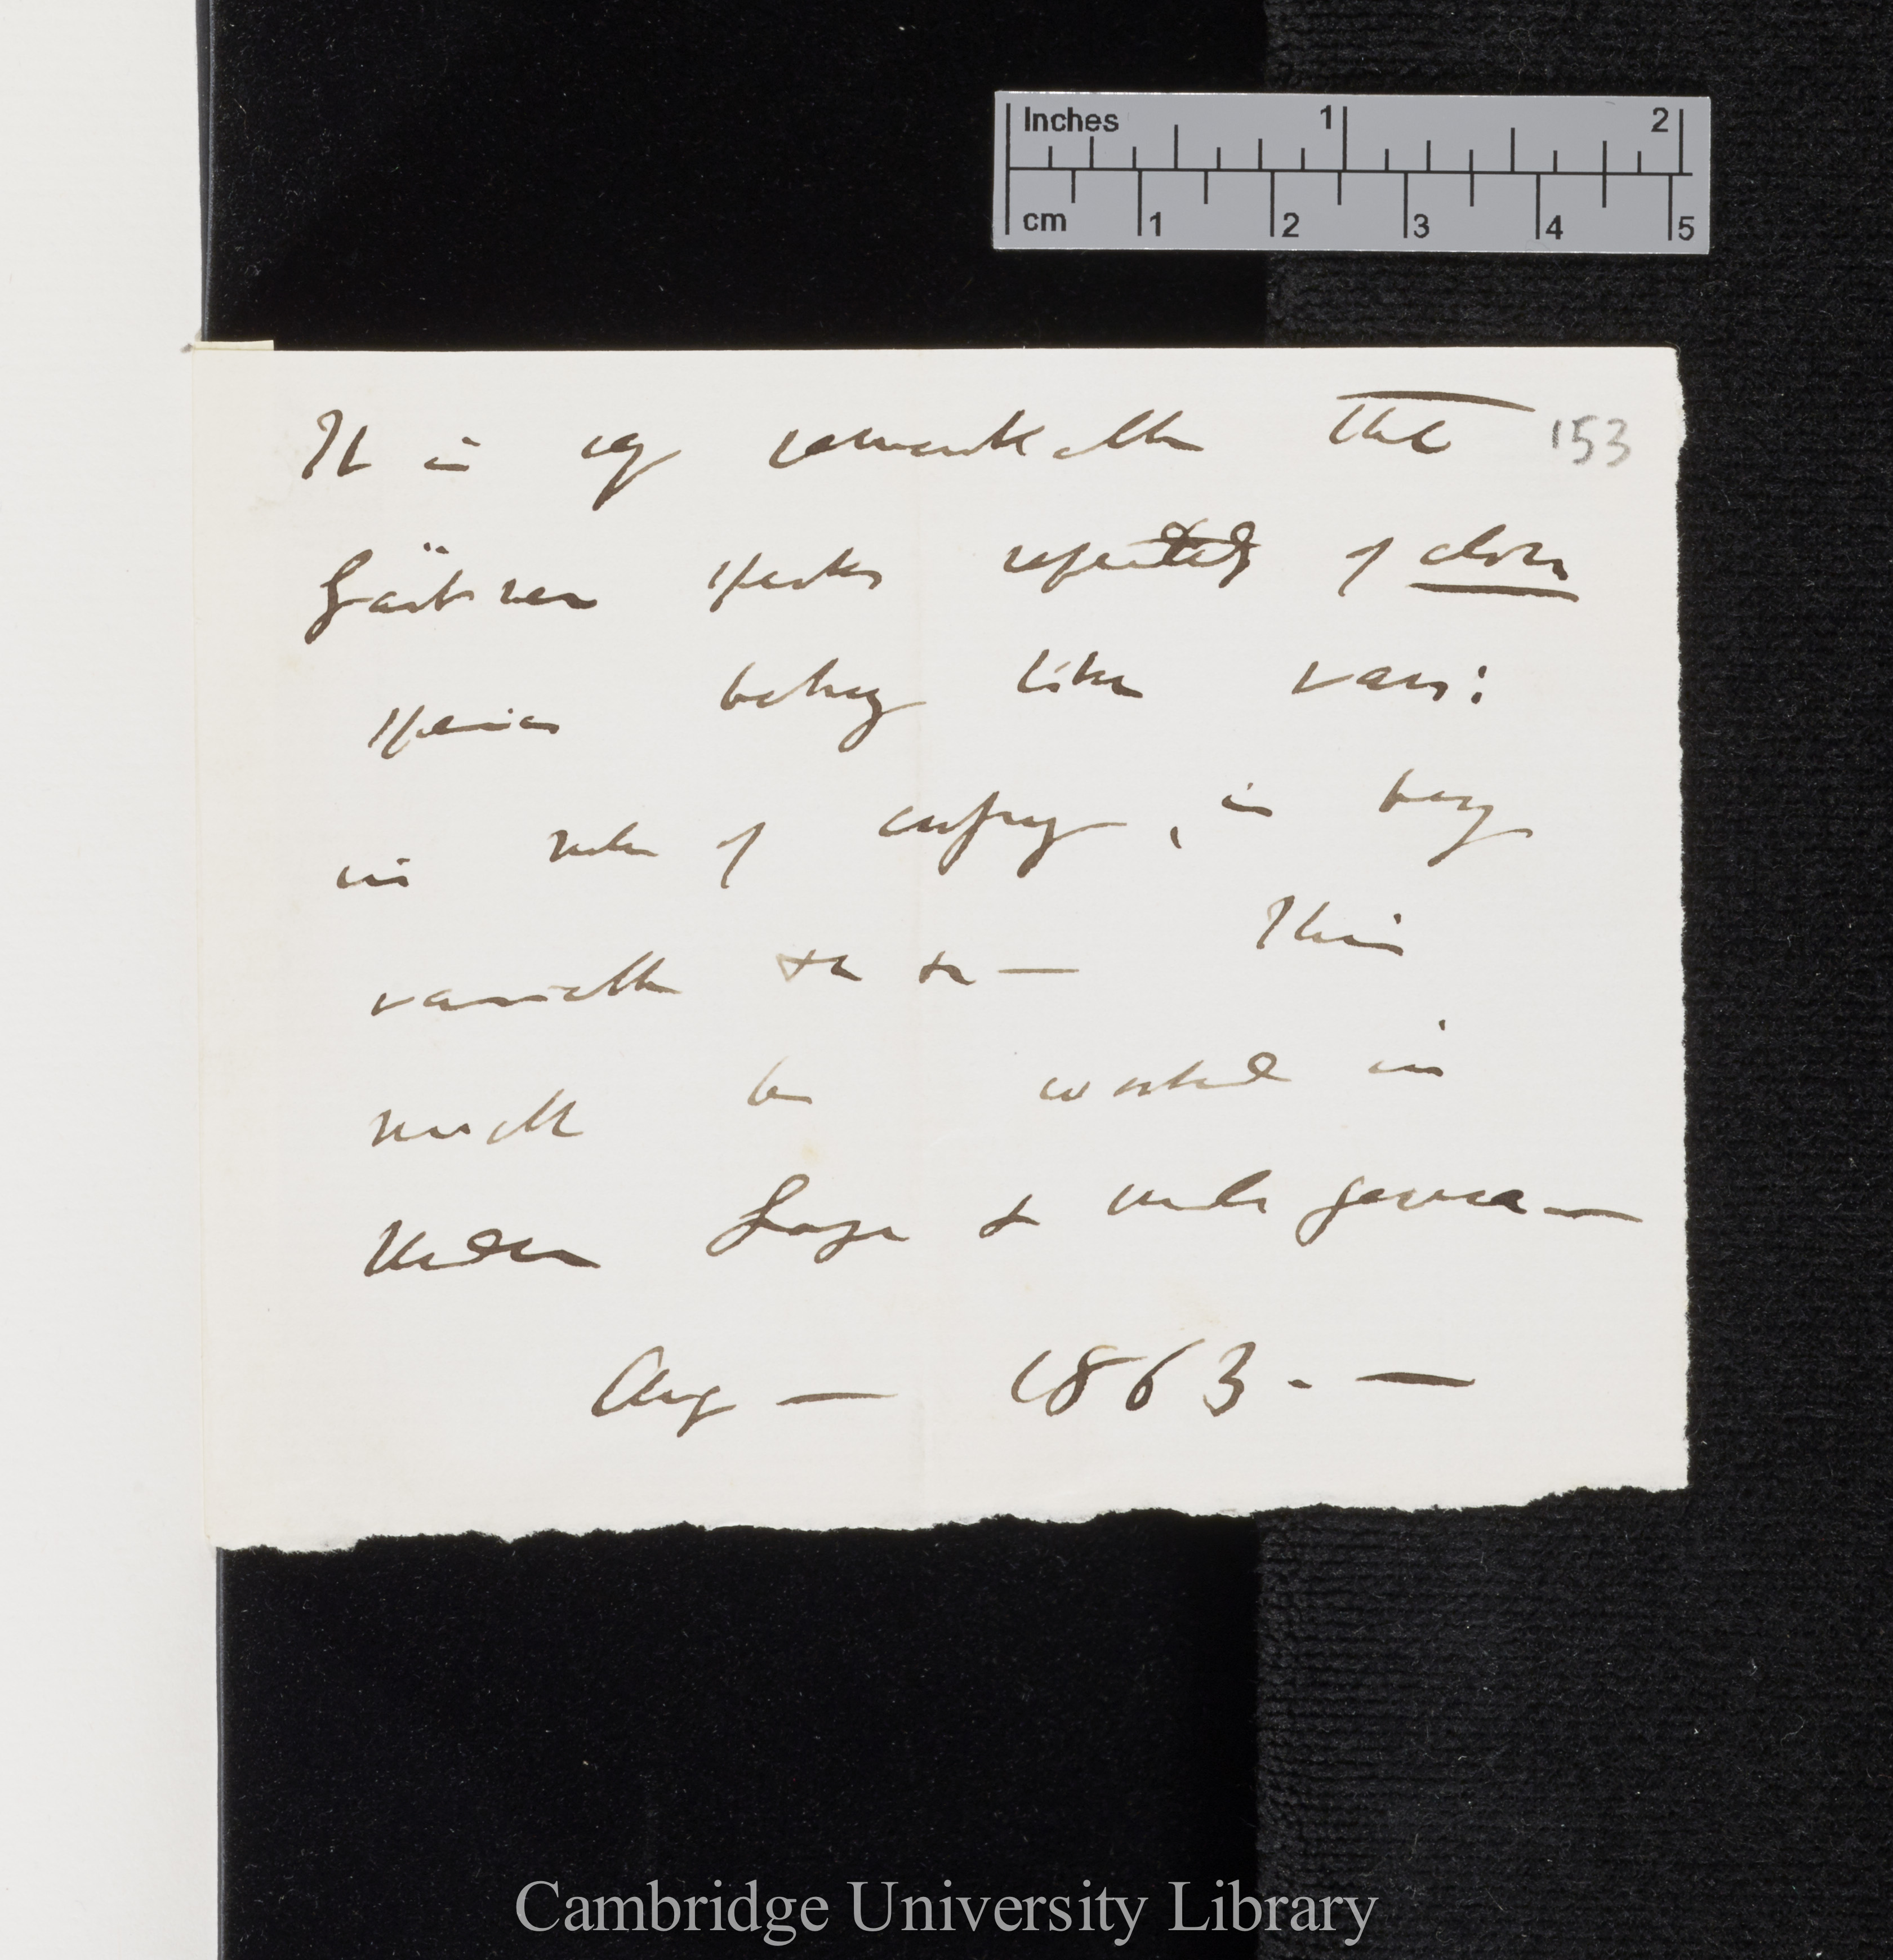 Inches 1 2
cm 1 2 3 4 5
It is very remarkable that 153
Gärtner speaks repeatedly of close
species behaving like vars:
in rules of crossing, in being
variable &c &c —
This
must be worked in
under &
Aug — 1863. —
Cambridge University Library